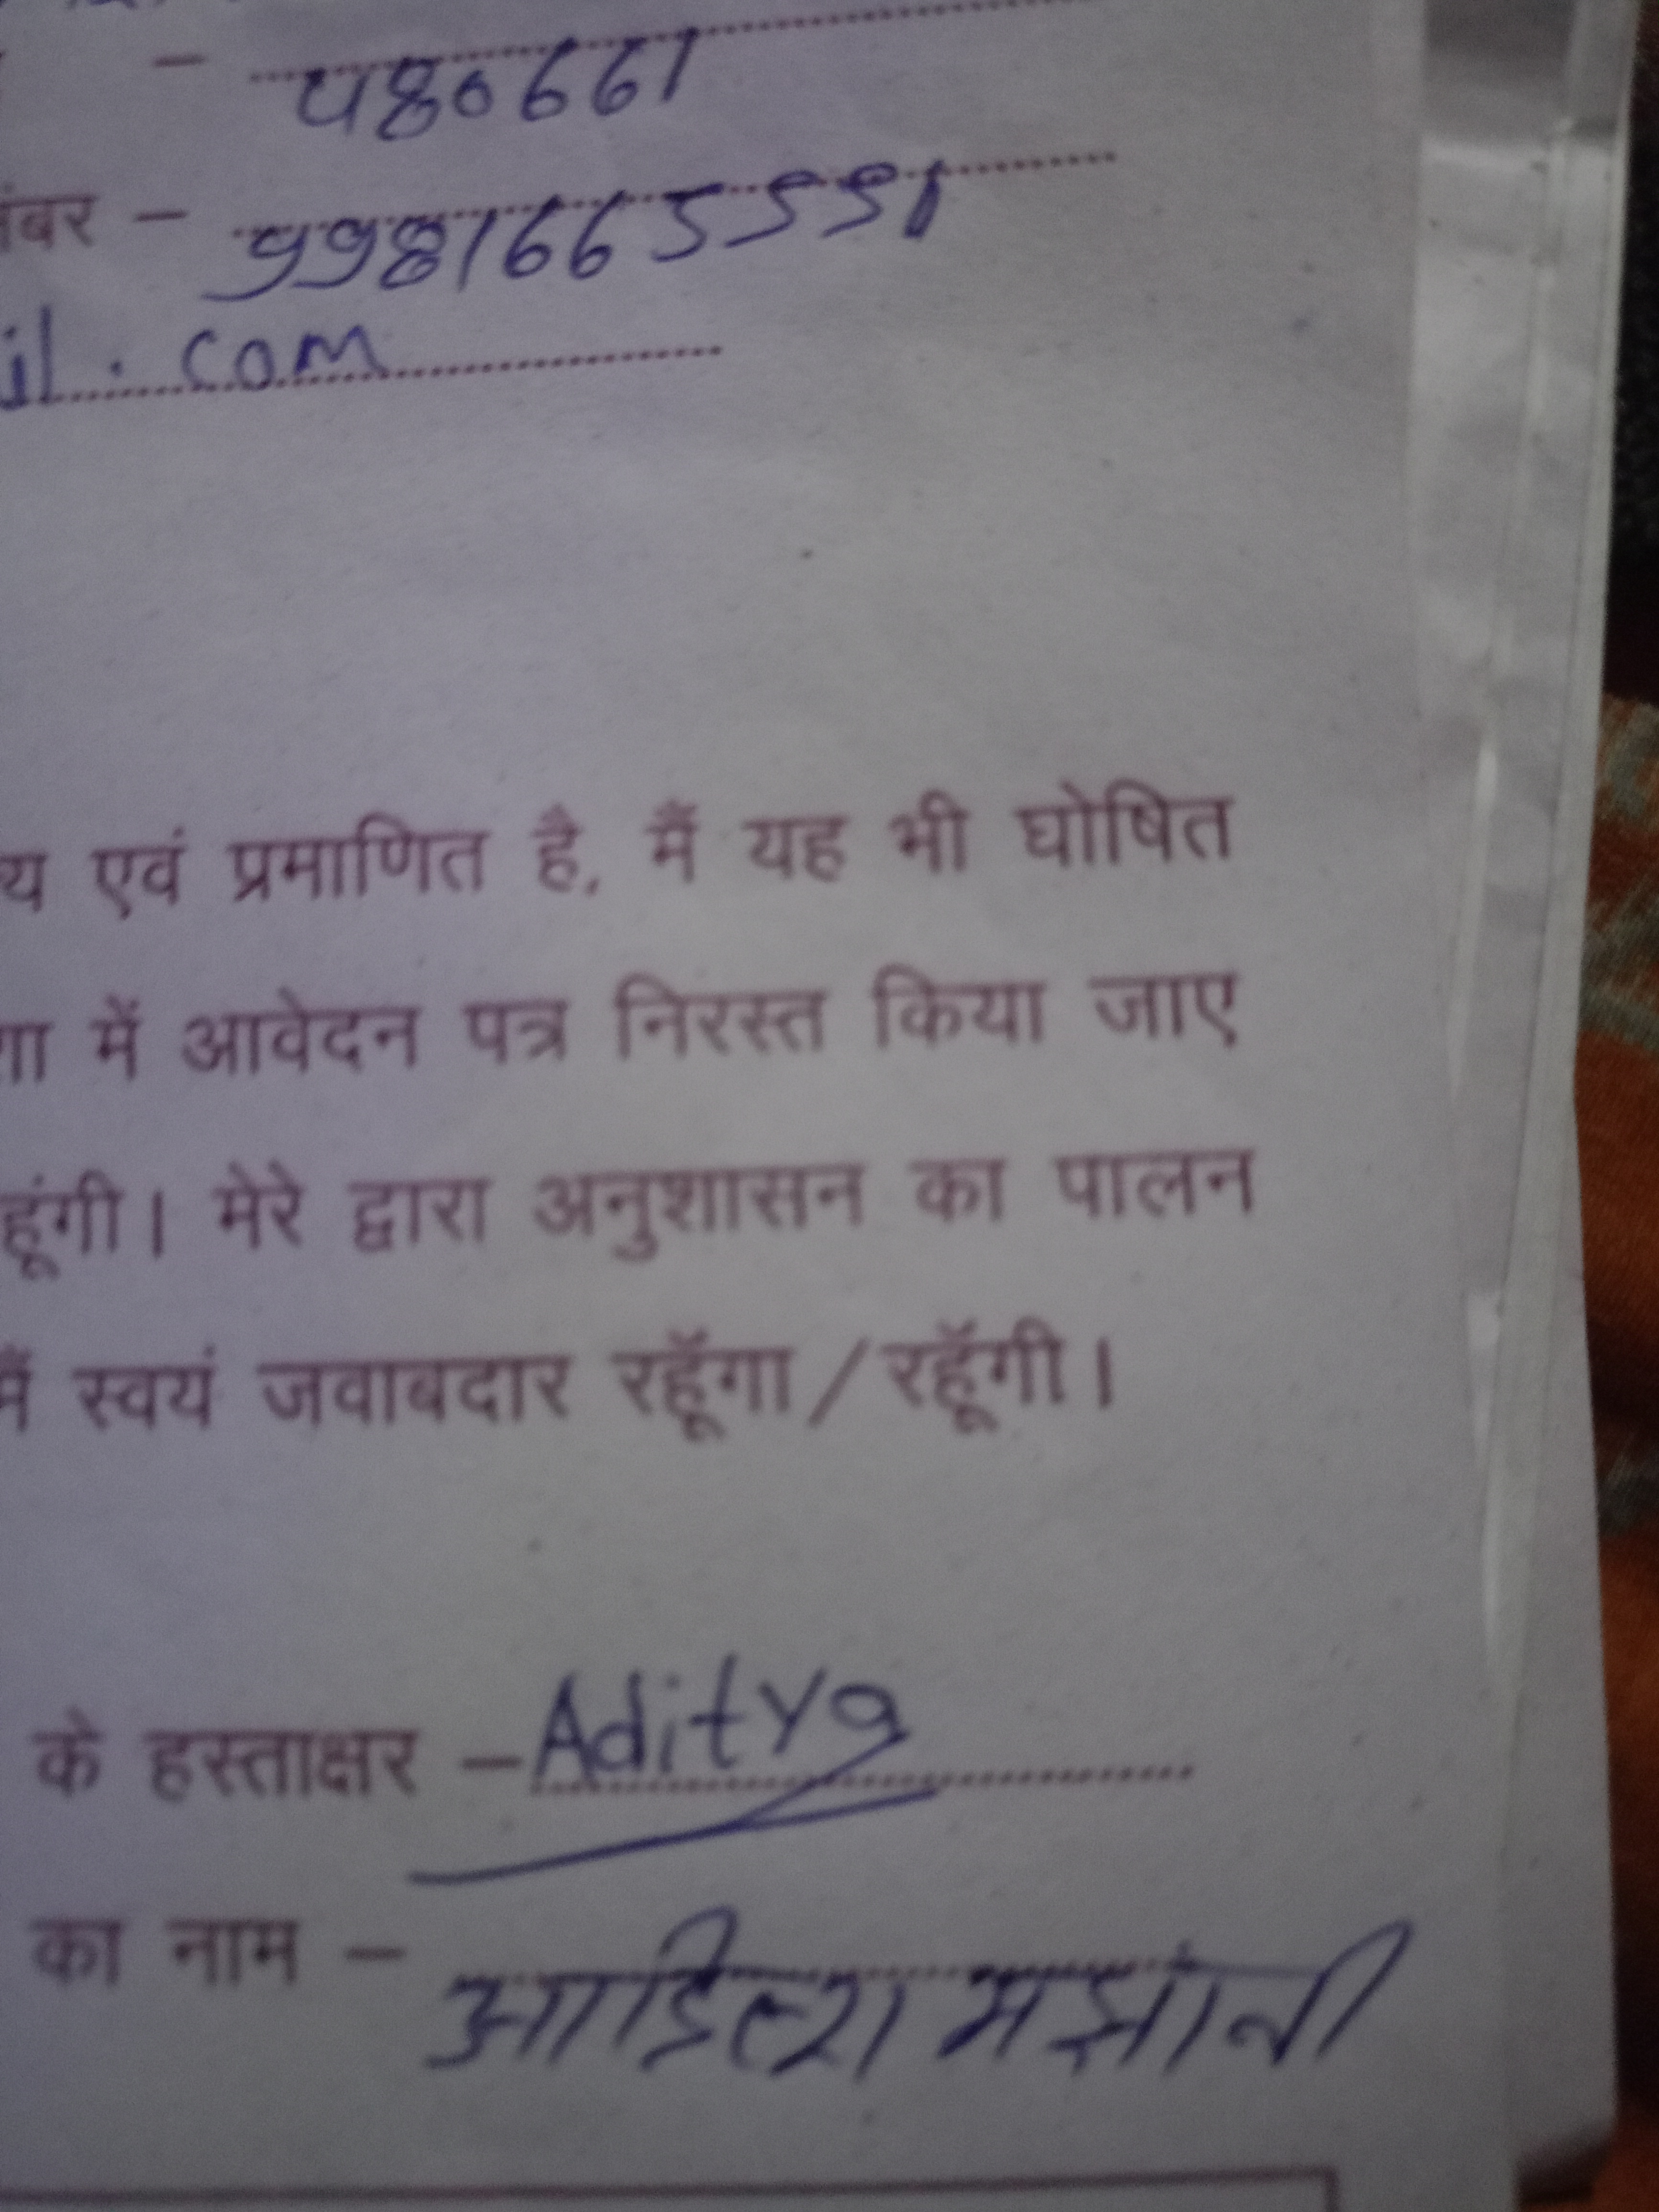 – 480661
नंबर – 9981665551
il.com
य एवं प्रमाणित है, मैं यह भी घोषित
में आवेदन पत्र निरस्त किया जाए
हूंगी। मेरे द्वारा अनुशासन का पालन
मैं स्वयं जवाबदार रहूँगा/रहूँगी।
के हस्ताक्षर – Aditya
का नाम – आदित्य